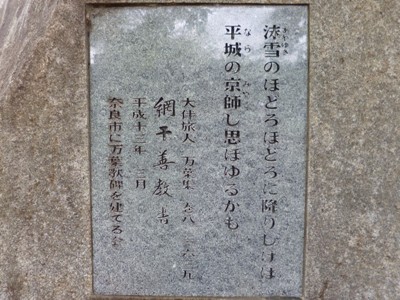 沫雪のほどろほどろに降りしけば
平城の京師し思ほゆるかも
大伴旅人 万葉集 巻八
網干善教書
平成十三年 三月
奈良市に万葉歌碑を建てる会